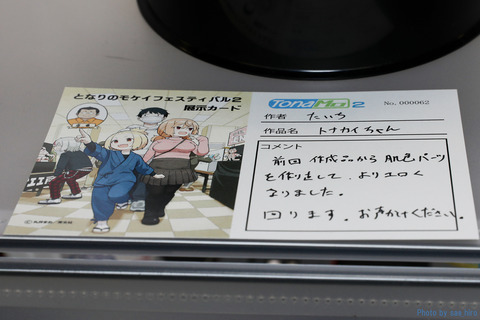 となりのモケイフェスティバル2
展示カード
TonaMo 2
No. 000062
作者 たいち
作品名 トナカイちゃん
コメント
前回作成品から肌色パーツ
を作り直して、よりエロく
なりました。
回ります。お声かけください。